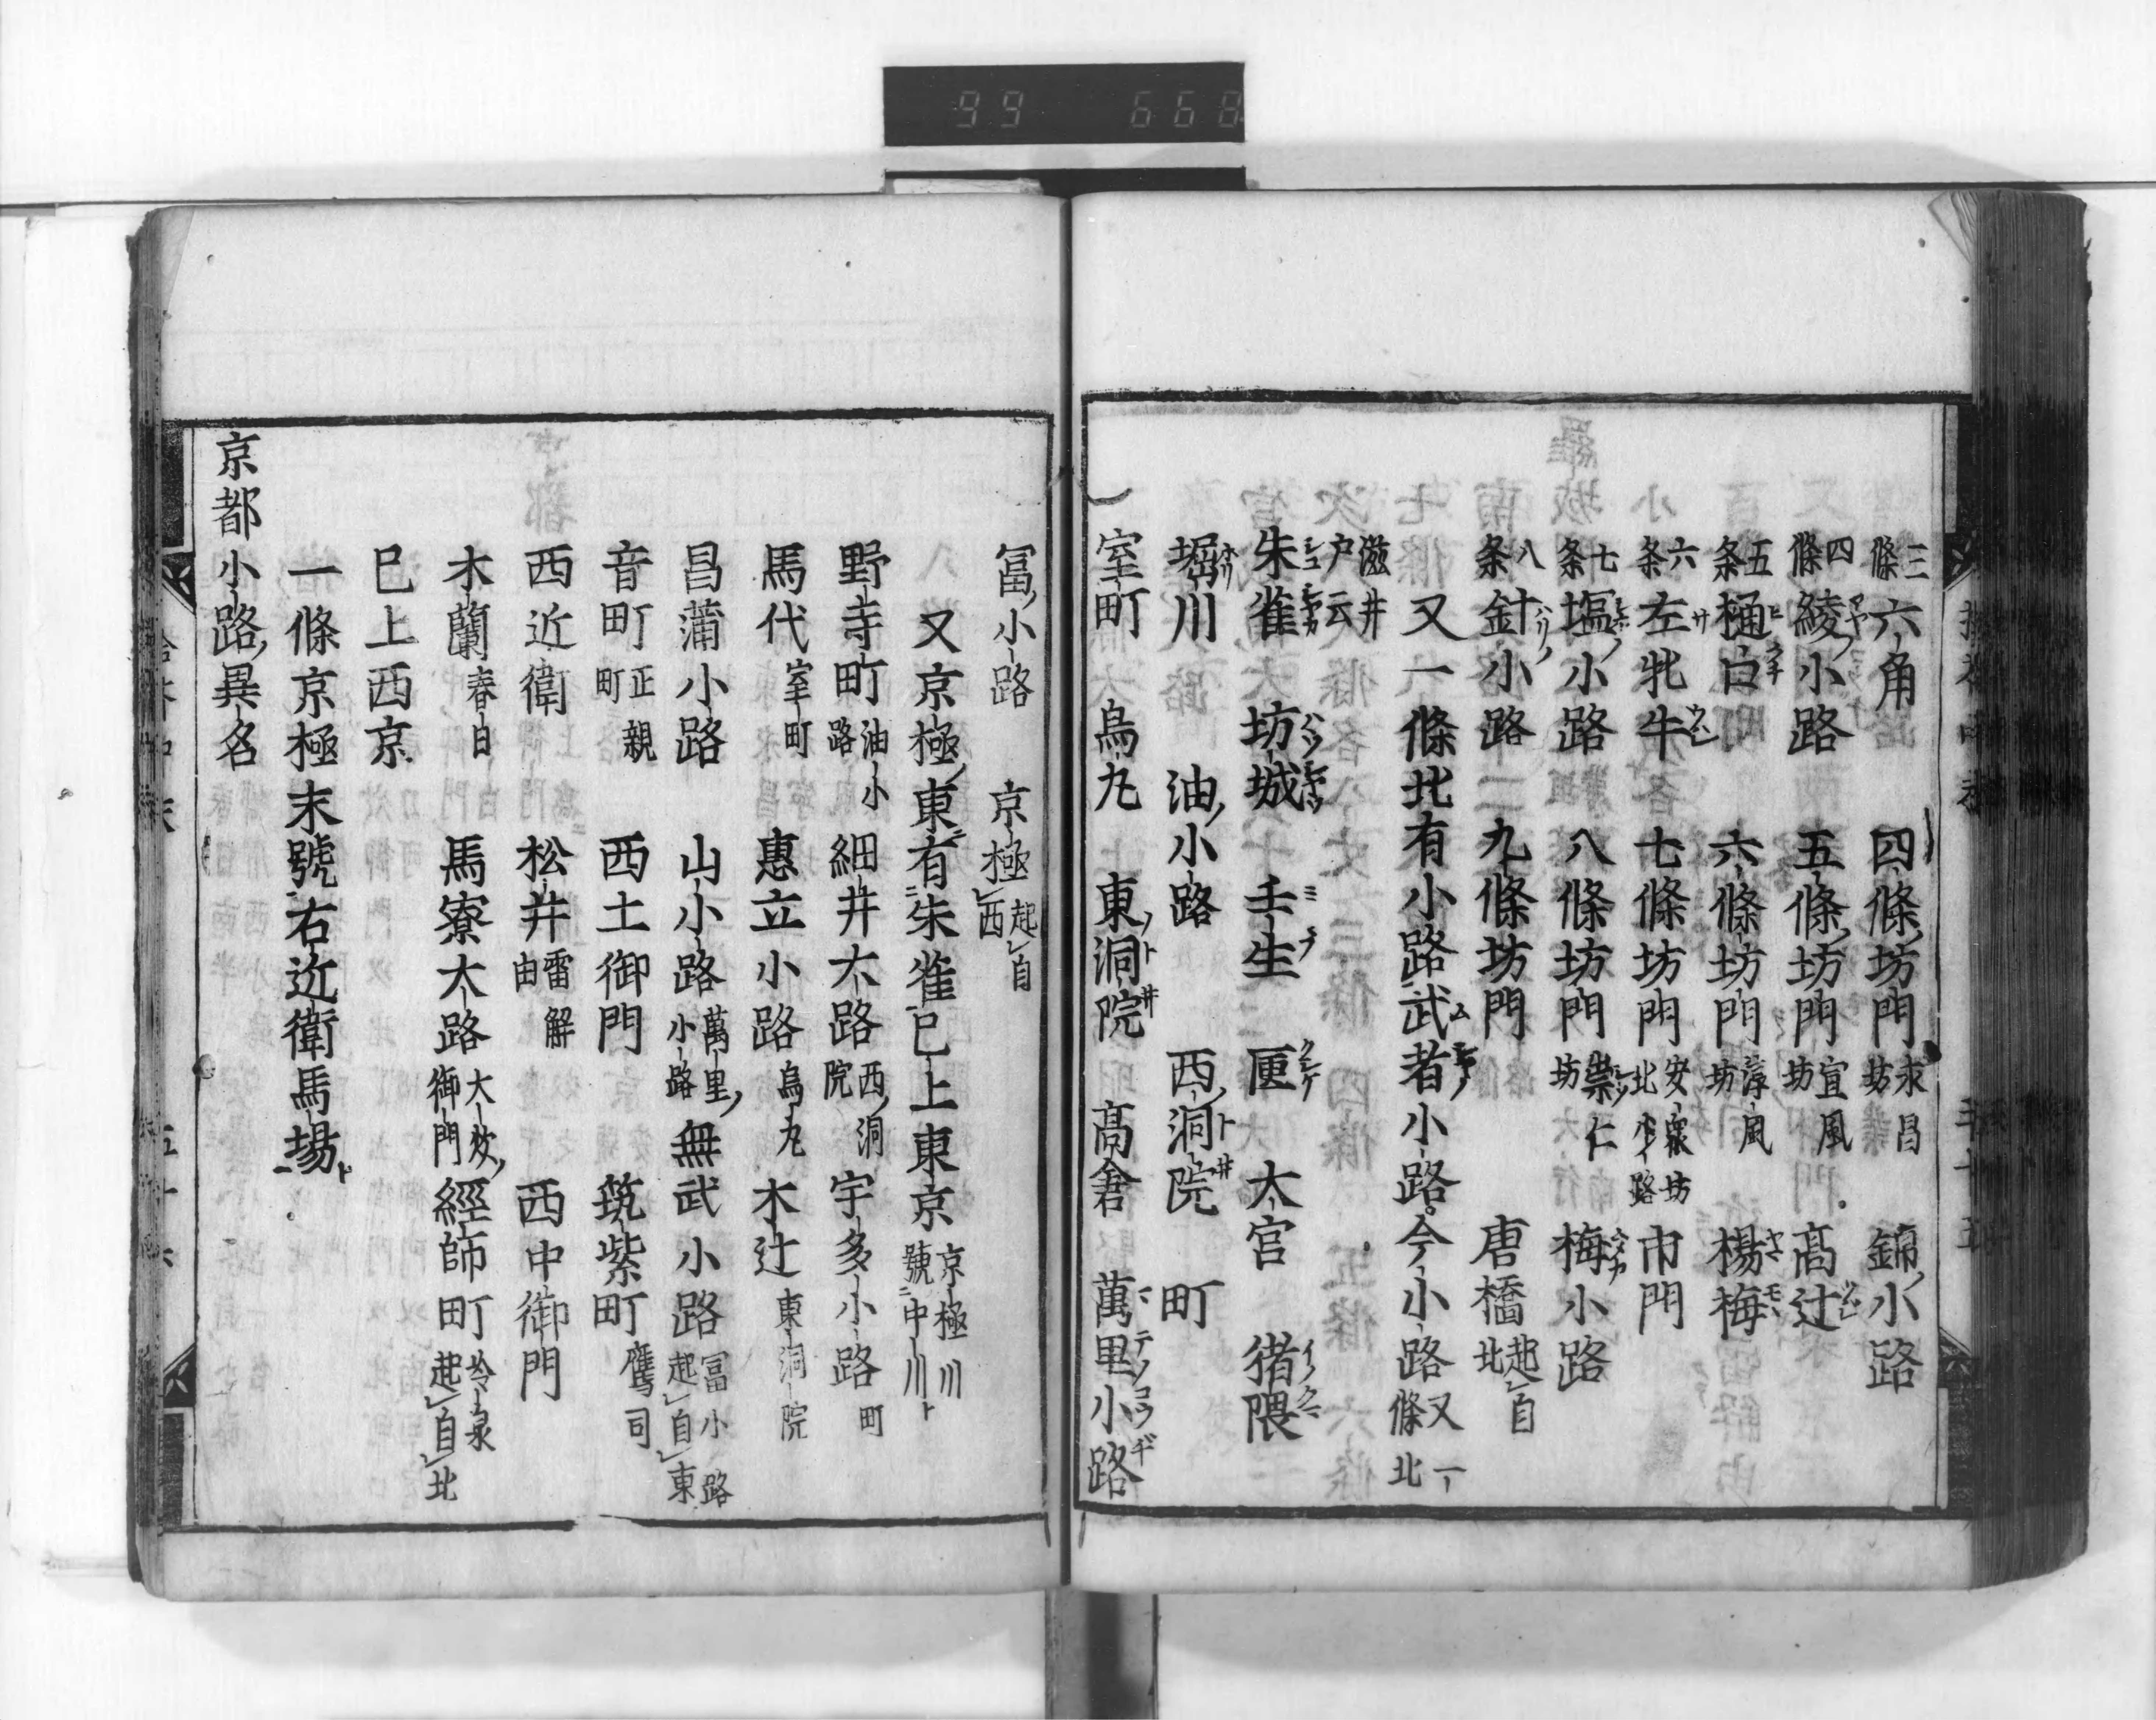 99 668
三條 六角 四條坊門 永昌坊 錦小路
四條 綾小路 五條坊門 宣風坊 高辻
五条 樋口 六條坊門 淳風坊 楊梅
六条 左牝牛 七條坊門 安衆坊 北小路 市門
七条 塩小路 八條坊門 崇仁坊 梅小路
八条 針小路 九條坊門 唐橋 起自北
又一條北有小路武者小路今小路 又一條北
滋井戸云
朱雀 坊城 壬生 匣 大宮 猪隈
堀川 油小路 西洞院 町
室町 烏丸 東洞院 高倉 萬里小路
冨小路 京極 起自西
又京極東有朱雀已上東京 京極川號中川
野寺町 油小路 細井大路 西洞院 宇多小路 町
馬代 室町 惠立小路 烏丸 木辻 東洞院
昌蒲小路 山小路 萬里小路 無武小路 冨小路起自東
音町 正親町 西土御門 筑紫町 鷹司
西近衛 松井 雷解由 西中御門
木蘭 春日 馬寮大路 大炊御門 經師町 冷泉起自北
已上西京
一條京極末號右近衛馬場
京都小路異名